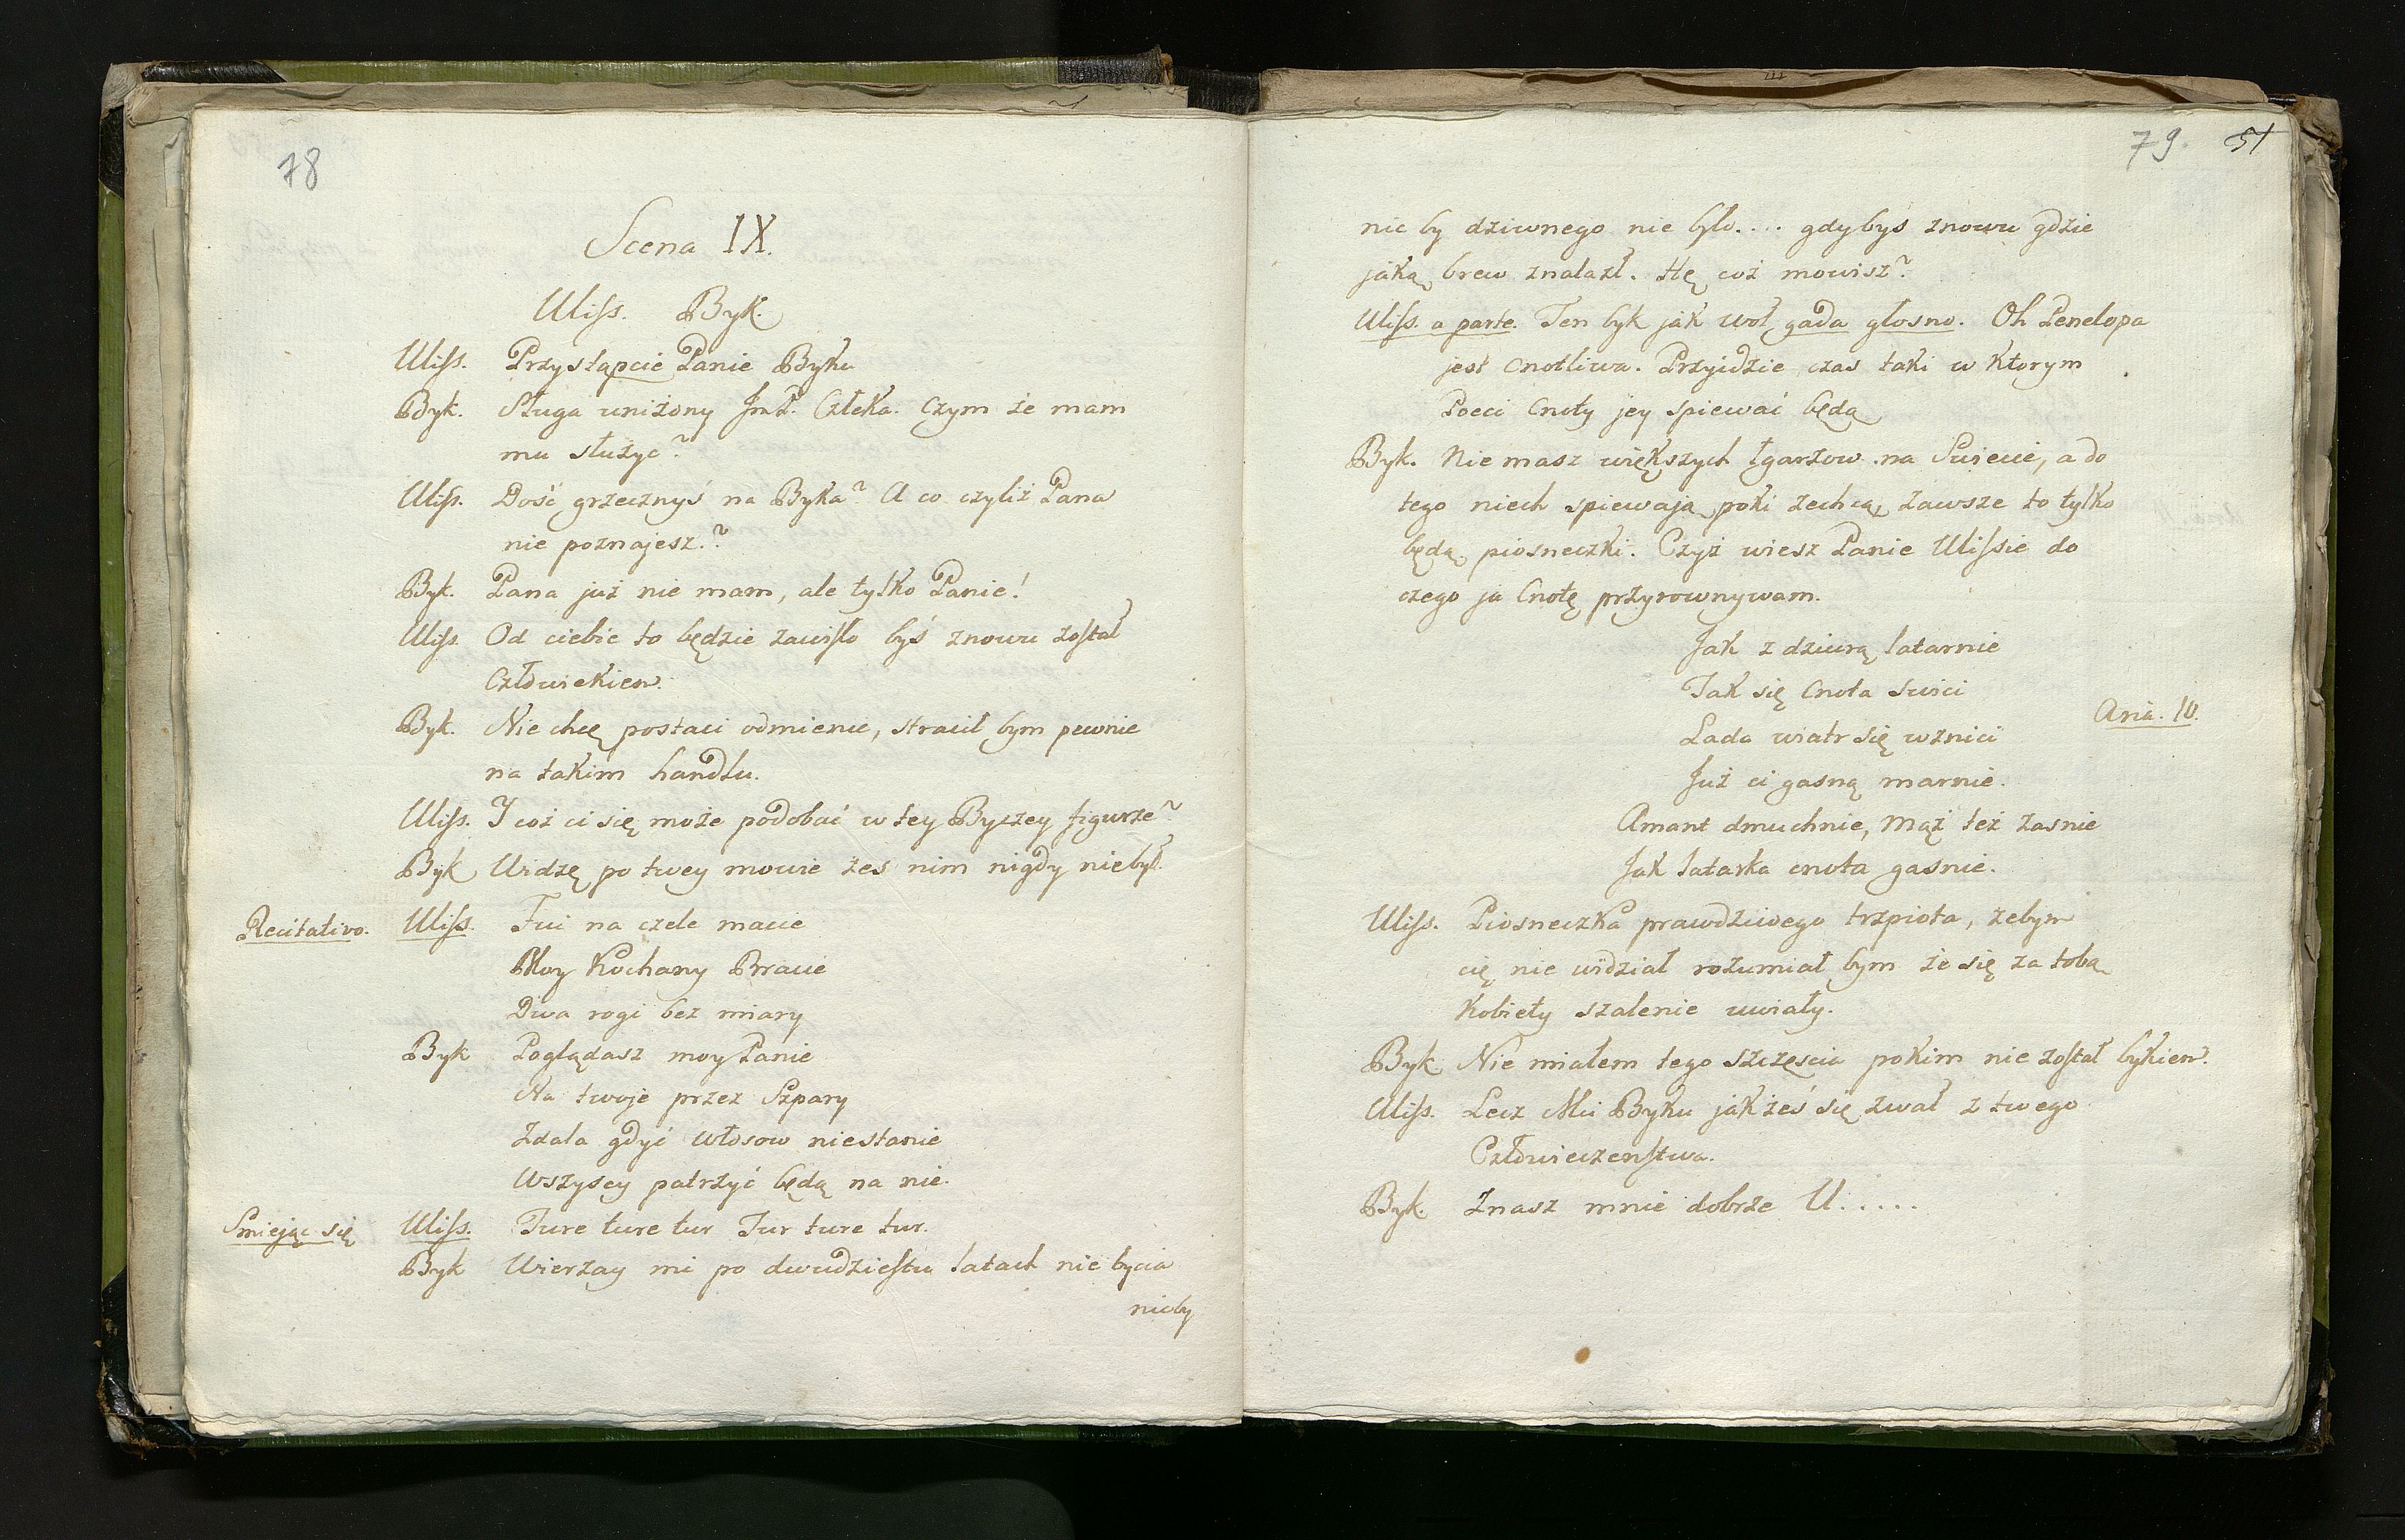 78
Scena IX.
Uliss. Byk.
Uliss. Przystąpcie Panie Byku
Byk. Sługa uniżony Jm P. Człeka. Czym że mam
mu służyc?
Uliss. Dość grzecznyś na Byka? A co czyliż Pana
nie poznajesz.?
Byk. Pana już nie mam, ale tylko Panie!
Uliss. Od ciebie to będzie zawisło byś znowu został
Człowiekiem.
Byk. Nie chcę postaci odmienić, stracił bym pewnie
na takim handlu.
Uliss. I coż ci się może podobać w tey Byczey figurze?
Byk Widzę po twey mowie żes nim nigdy niebył.
Recitativo. Uliss. Tui na czele macie
Moy Kochany Bracie
Dwa rogi bez miary
Byk Poglądasz moy Panie
Na twoje przez Szpary
Zdala gdyć włosow niestanie
Wszyscy patrzyć będą na nie.
Smiejąc się Uliss. Ture ture tur Tur ture tur.
Byk Wierzay mi po dwudziestu latach nie bycia
nicby
79. 51
nic by dziwnego nie było.... gdybys znowu gdzie
jaką brew znalazł. Hę coż mowisz?
Uliss. a parte. Ten byk jak woł gada głosno. Oh Penelopa
jest cnotliwa. Przyidzie czas taki w Ktorym
Poeci Cnoty jey spiewać będą
Byk. Nie masz większych łgarzow na Swiecie, a do
tego niech spiewają poki zechcą, zawsze to tylko
będą piosneczki. Czyż wiesz Panie Ulissie do
czego ja Cnotę przyrownywam.
Jak z dziurą latarnie
Tak się Cnota swici
Aria. 10.
Lada wiatr się wznici
Już ci gasną marnie.
Amant dmuchnie, Mąż też zasnie
Jak latarka cnota gasnie.
Uliss. Piosneczka prawdziwego trzpiota, żebym
cię nie widział rozumiał bym że się za tobą
Kobiety szalenie uwiały.
Byk Nie miałem tego szczęscia pokim nie został bykiem.
Uliss. Lecz Mci Byku jak żeś się zwał z twego
Człowieczenstwa.
Byk. Znasz mnie dobrze U.....